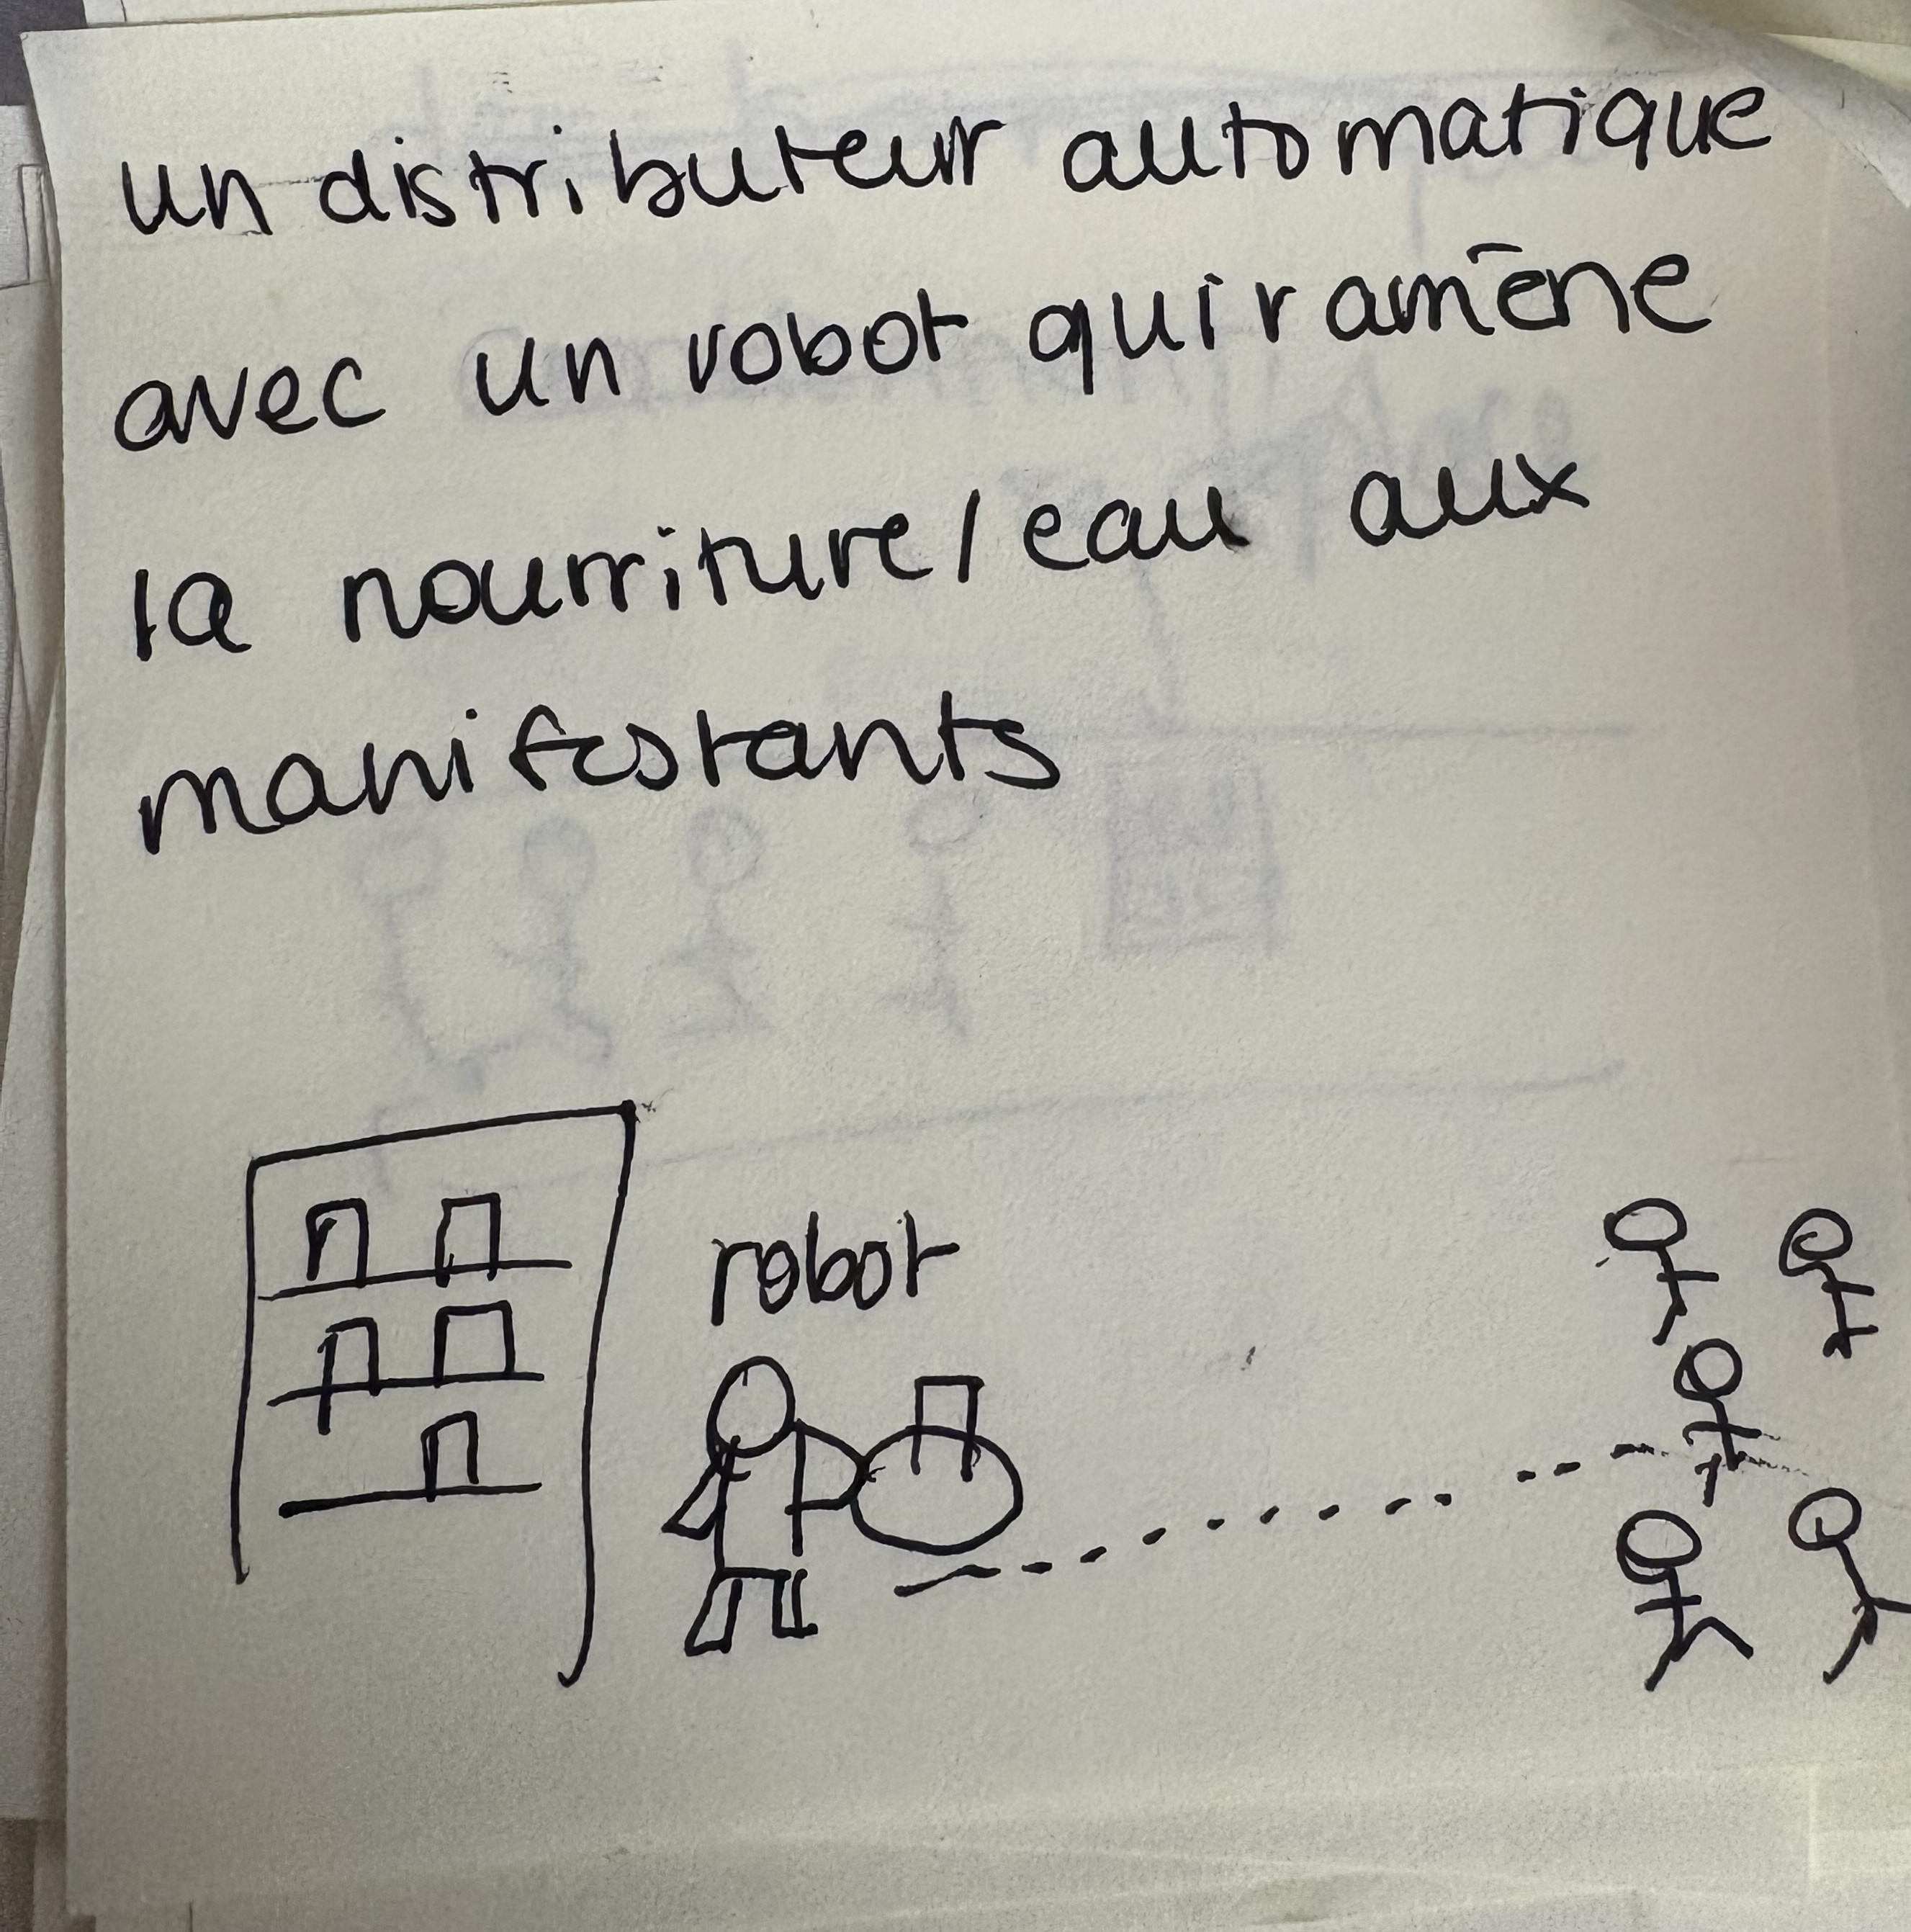 un distributeur automatique
avec un robot qui ramène
la nourriture/eau aux
manifestants
robot